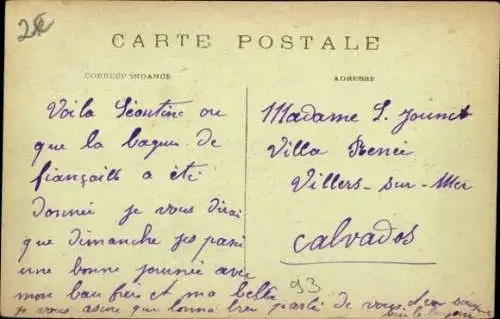 2€
CARTE POSTALE
CORRESPONDANCE
ADRESSE
Voila Léontine ou
que la bague de
fiançaills a été
donnée je vous dirai
que dimanche jes passé
une bonne journée avec
mon bau frère et ma belle
je vous assure que bien parlé de vous
Madame L. Jounet
Villa Renée
Villers-sur-Mer
Calvados
93